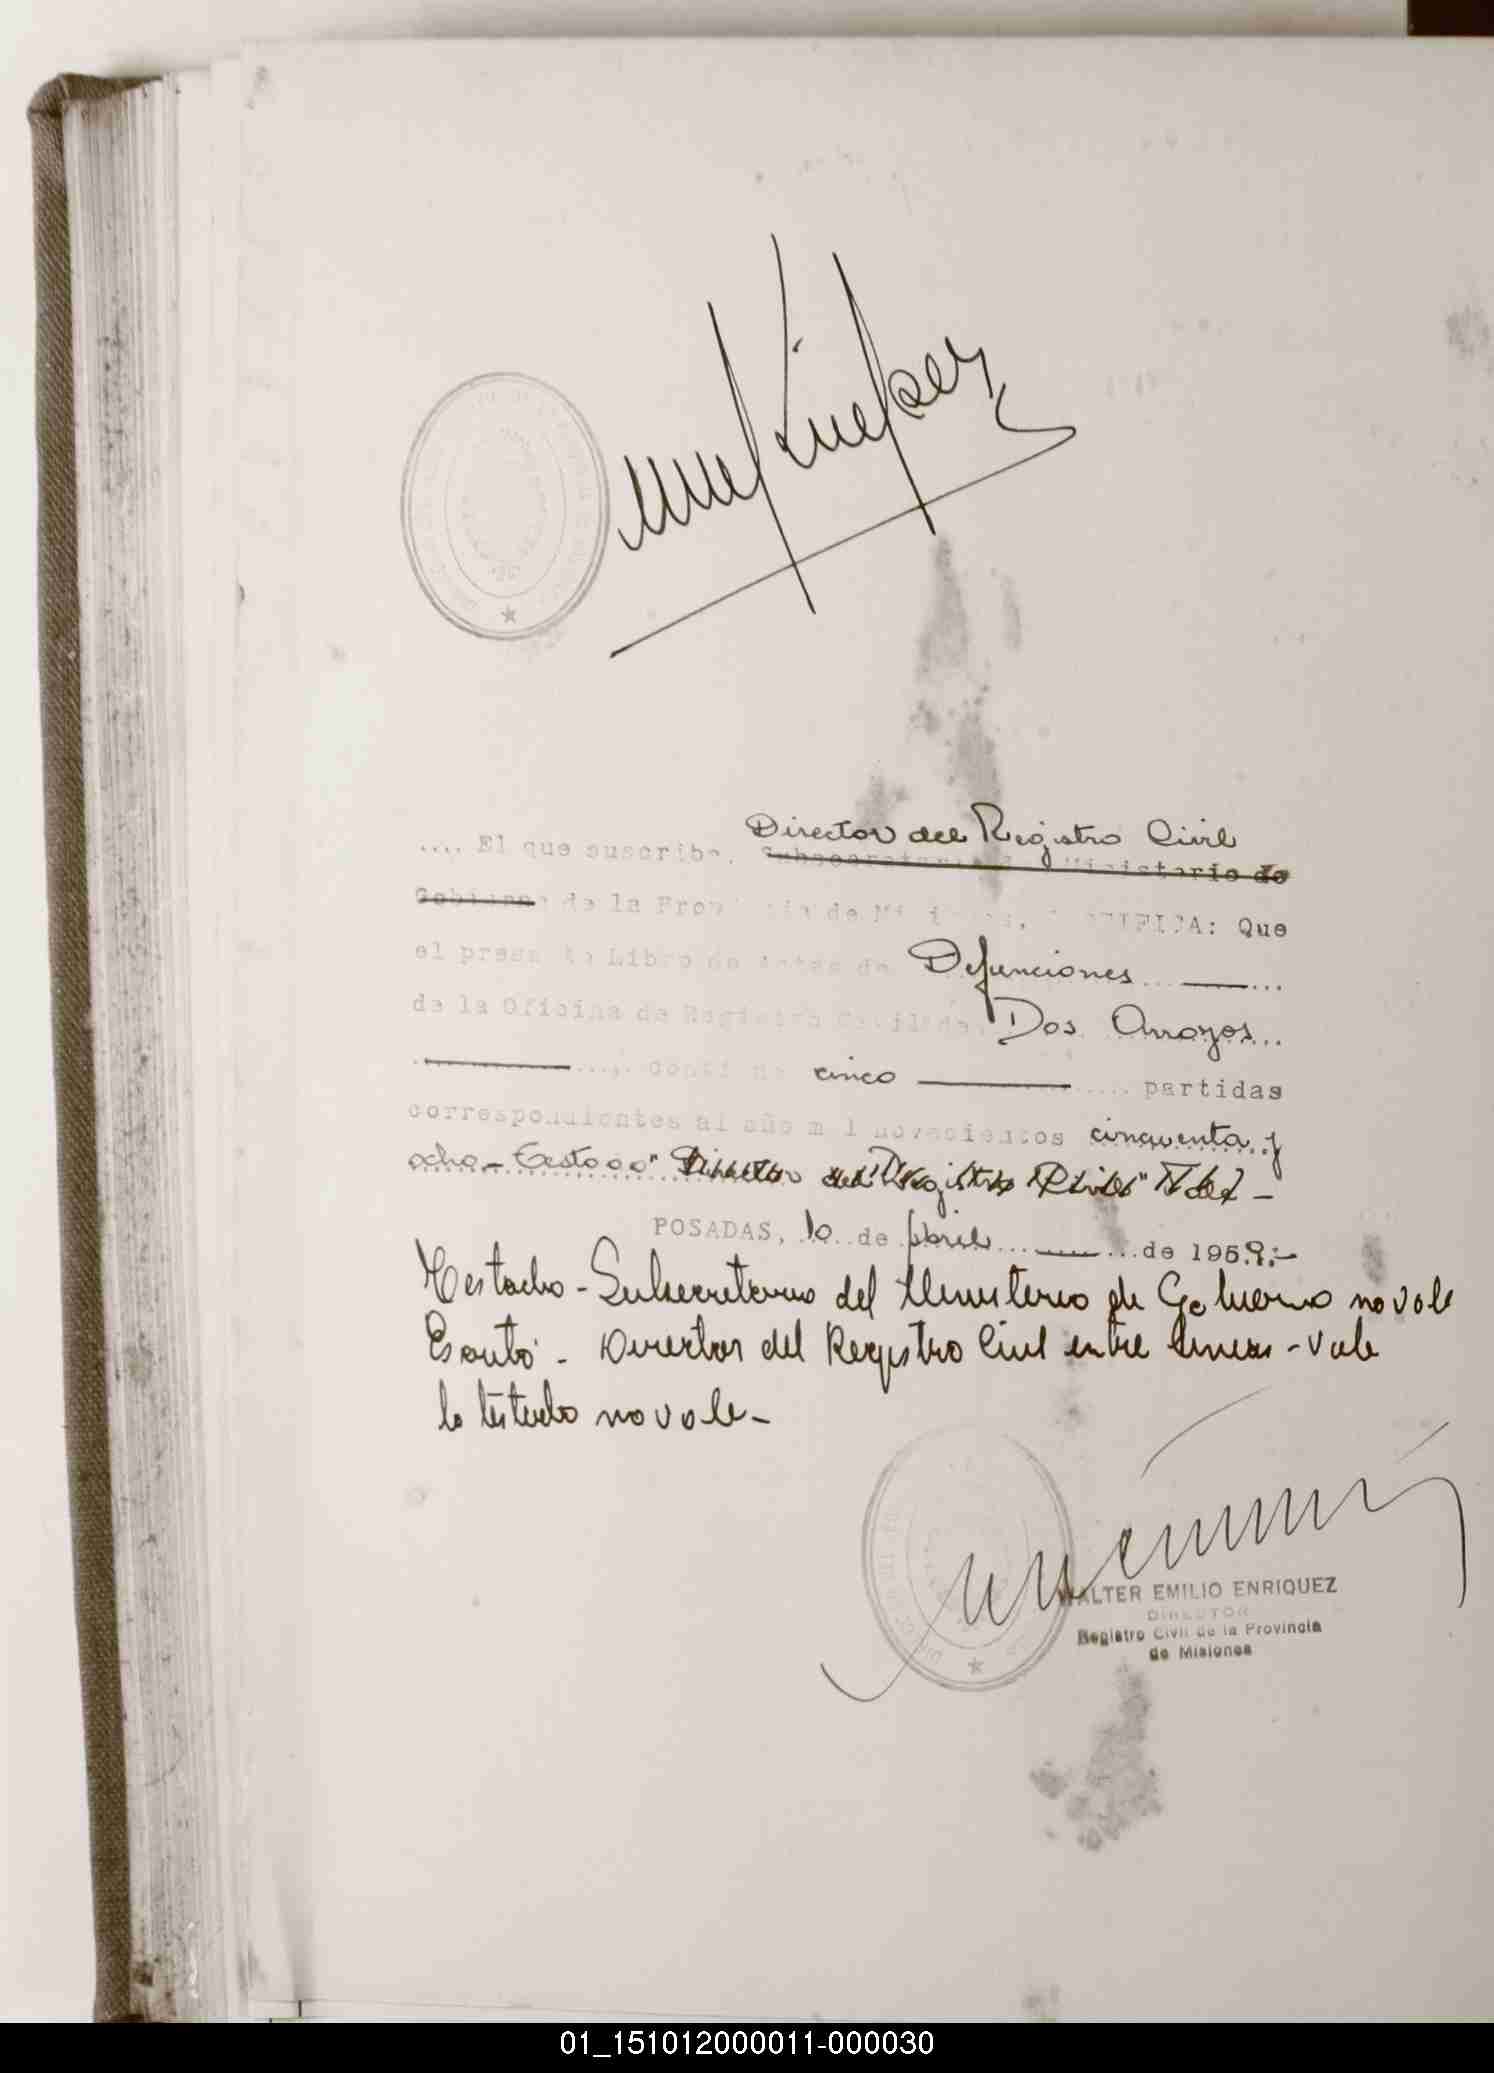 Director del Registro Civil
.... El que suscribe, Subsecretario del Ministerio de
Gobierno de la Provincia de Misiones, CERTIFICA: Que
el presente Libro de Actas de Defunciones
de la Oficina de Registro Civil de Dos Arroyos...
contiene cinco partidas
correspondientes al año mil novecientos cincuenta y
ocho.- Testado "Director del Registro Civil"
POSADAS, 10 de Abril de 1959.-
Testado - Subsecretario del Ministerio de Gobierno no vale
Director del Registro Civil entre lineas - Vale
lo testado no vale -
WALTER EMILIO ENRIQUEZ
DIRECTOR
Registro Civil de la Provincia
de Misiones
01_151012000011-000030